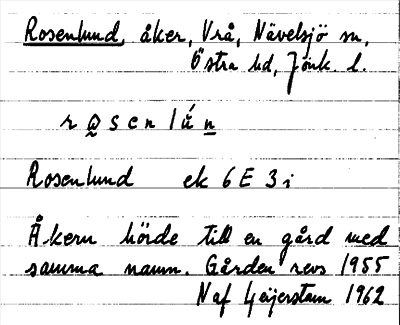 Rosenlund, åker, Vrå, Nävelsjö sn,
Östra hd, Jönk. l.
Rosenlund ek 6 E 3 i
Åkern hörde till en gård med
samma namn. Gården revs 1955
N af Geijerstam 1962